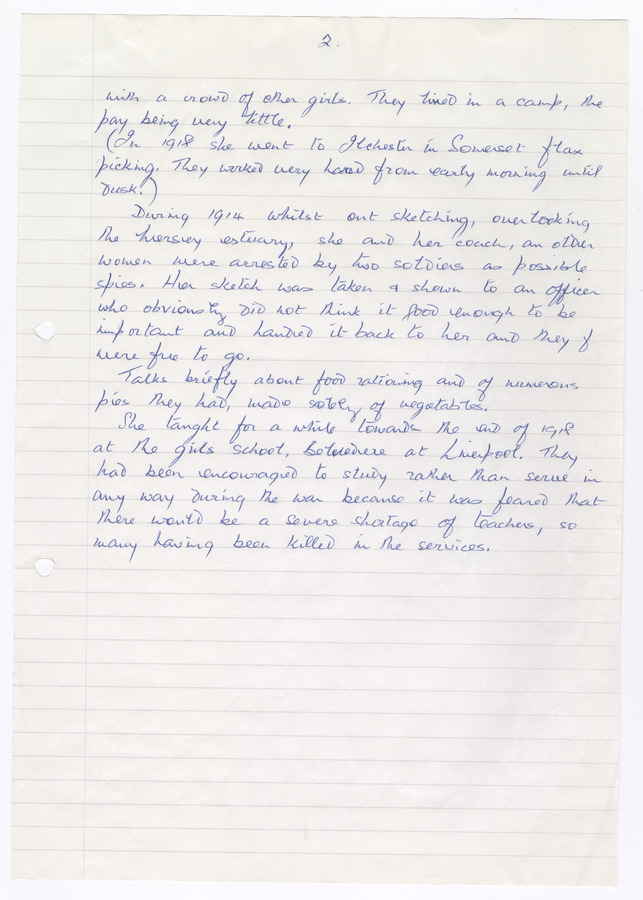 2.
with a crowd of other girls. They lived in a camp, the
pay being very little.
(In 1918 she went to Ilchester in Somerset flax
picking. They worked very hard from early morning until
dusk.)
During 1914 whilst out sketching, overlooking
the Mersey estuary, she and her coach, an older
women were arrested by two soldiers as possible
spies. Her sketch was taken & shown to an officer
who obviously did not think it good enough to be
important and handed it back to her and they
were free to go.
Talks briefly about food rationing and of numerous
pies they had, made solely of vegetables.
She taught for a while towards the end of 1918
at the girls school, Belvedere at Liverpool. They
had been encouraged to study rather than serve in
any way during the war because it was feared that
there would be a severe shortage of teachers, so
many having been killed in the services.